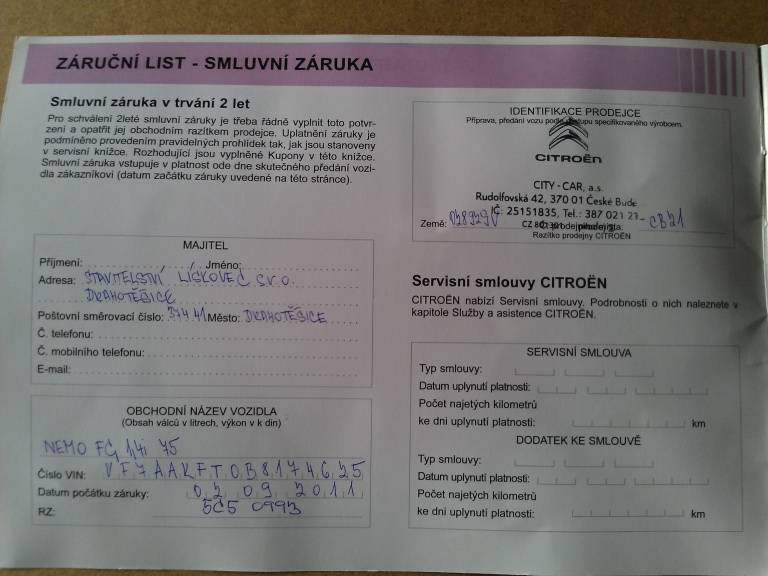 ZÁRUČNÍ LIST - SMLUVNÍ ZÁRUKA
Smluvní záruka v trvání 2 let
Pro schválení 2leté smluvní záruky je třeba řádně vyplnit toto potvr-
zení a opatřit jej obchodním razítkem prodejce. Uplatnění záruky je
podmíněno provedením pravidelných prohlídek tak, jak jsou stanoveny
v servisní knížce. Rozhodující jsou vyplněné Kupony v této knížce.
Smluvní záruka vstupuje v platnost ode dne skutečného předání vozi-
dla zákazníkovi (datum začátku záruky uvedené na této stránce).
MAJITEL
Příjmení: Jméno:
Adresa: STAVITELSTVÍ LÍŠKOVEC s.r.o.
DRAHOTĚŠICE
Poštovní směrovací číslo: 374 41 Město: DRAHOTĚŠICE
Č. telefonu:
Č. mobilního telefonu:
E-mail:
OBCHODNÍ NÁZEV VOZIDLA
(Obsah válců v litrech, výkon v k din)
NEMO FG 1,4i 75
Číslo VIN: VF7AAKFT0B8174625
Datum počátku záruky: 02 09 2011
RZ: 5C5 0993
IDENTIFIKACE PRODEJCE
Příprava, předání vozu podle postupu specifikovaného výrobcem.
CITROËN
CITY - CAR, a.s.
Rudolfovská 42, 370 01 České Bude
IČ: 25151835, Tel.: 387 021 21
Země: 028929V CB21
Razítko prodejny CITROËN
Servisní smlouvy CITROËN
CITROËN nabízí Servisní smlouvy. Podrobnosti o nich naleznete v
kapitole Služby a asistence CITROËN.
SERVISNÍ SMLOUVA
Typ smlouvy:
Datum uplynutí platnosti:
Počet najetých kilometrů
ke dni uplynutí platnosti: km
DODATEK KE SMLOUVĚ
Typ smlouvy:
Datum uplynutí platnosti:
Počet najetých kilometrů
ke dni uplynutí platnosti: km